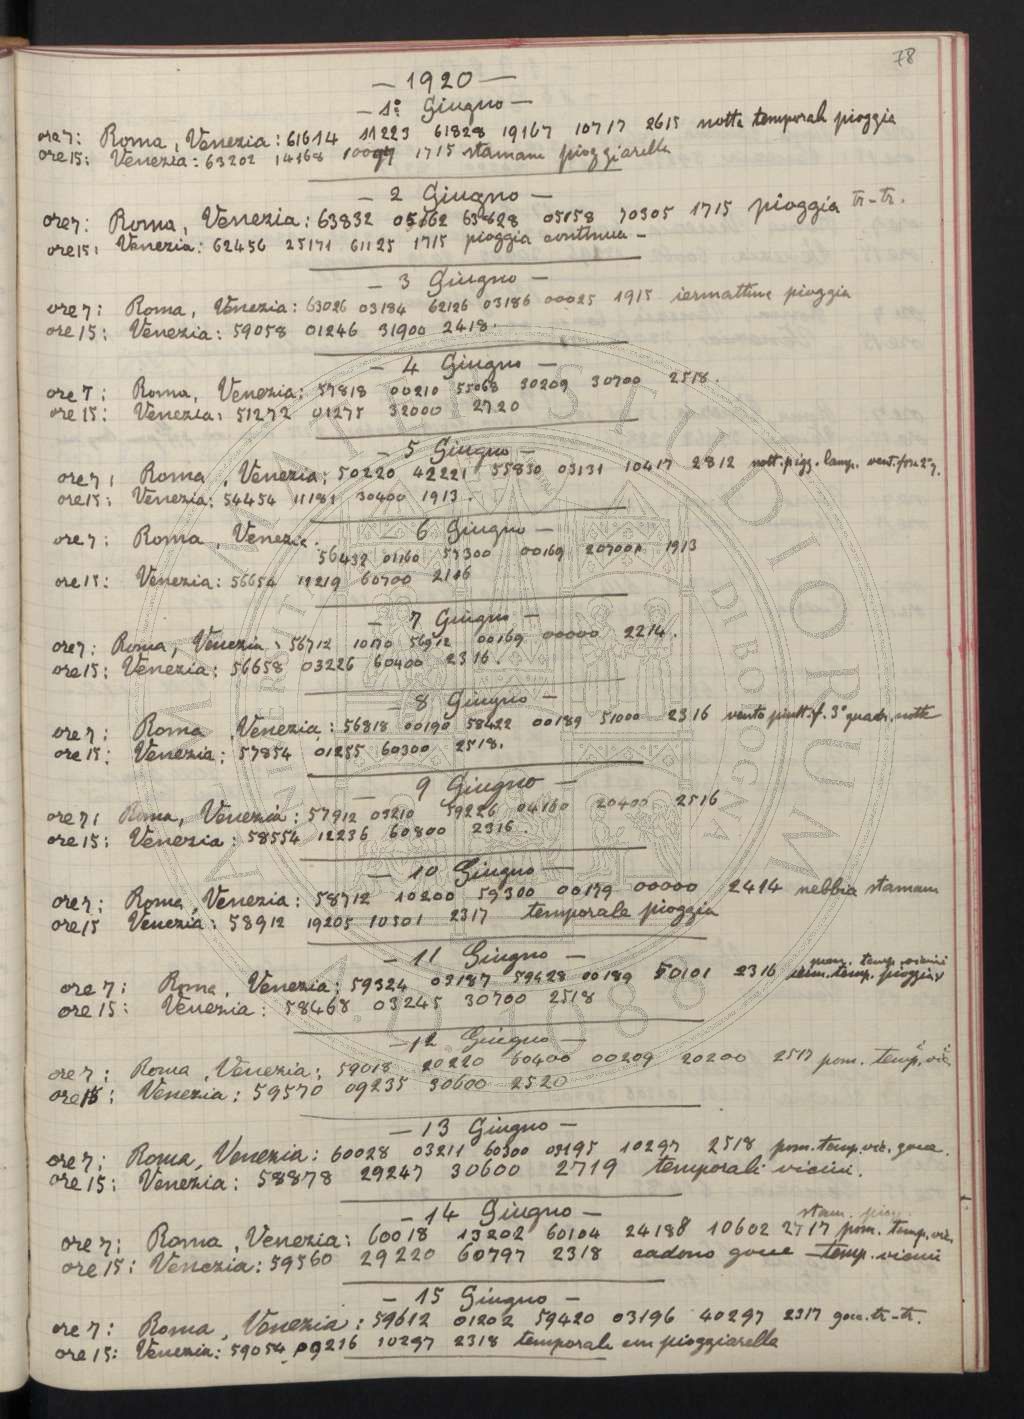 78
— 1920 —
— 1° Giugno —
ore 7: Roma, Venezia: 61614 11223 61828 19167 10717 2615 notte temporale pioggia
ore 15: Venezia: 63202 14168 1715 stamane pioggiarella
— 2 Giugno —
ore 7: Roma, Venezia: 63832 05162 63828 05158 70305 1715 pioggia tr-tr.
ore 15: Venezia: 62456 25171 61125 1715 pioggia continua —
— 3 Giugno —
ore 7: Roma, Venezia: 63026 03184 62126 03186 00025 1915 iermattina pioggia
ore 15: Venezia: 59058 01246 31900 2418.
— 4 Giugno —
ore 7: Roma, Venezia: 57818 00210 55068 30209 30700 2518.
ore 15: Venezia: 51272 01275 32000 2720
— 5 Giugno —
ore 7: Roma, Venezia: 50220 42221 55830 03131 10417 2812 nott. piogg. lamp.
ore 15: Venezia: 54454 11181 30400 1913.
— 6 Giugno —
ore 7: Roma, Venezia. 56432 01160 57300 00169 1913
ore 15: Venezia: 56654 12219 60700 2116
— 7 Giugno —
ore 7: Roma, Venezia: 56712 10170 56912 00169 00000 2214.
ore 15: Venezia: 56658 03226 60400 2316.
— 8 Giugno —
ore 7: Roma, Venezia: 56818 00190 58422 00189 51000 2316 vento f. 3° quadr. notte
ore 15: Venezia: 57854 01255 60300 2518.
— 9 Giugno —
ore 7: Roma, Venezia: 57912 03210 59226 04160 20400 2516
ore 15: Venezia: 58554 12236 60800 2316.
— 10 Giugno —
ore 7: Roma, Venezia: 58712 10200 59300 00179 00000 2414 nebbia stamane
ore 15 Venezia: 58912 19205 10501 2317 temporale pioggia
— 11 Giugno —
pom. temp. vicini
ore 7: Roma, Venezia: 59324 03187 59428 00189 50101 2316 temp. pioggia
ore 15: Venezia: 58468 03245 30700 2518
— 12 Giugno —
ore 7: Roma, Venezia: 59018 20220 60400 00209 20200 2517 pom. temp. vic.
ore 15: Venezia: 59570 09235 30600 2520
— 13 Giugno —
ore 7: Roma, Venezia: 60028 03211 60300 03195 10297 2518 pom. temp. vic. goccie.
ore 15: Venezia: 58878 29247 30600 2719 temporali vicini.
— 14 Giugno —
stam.
ore 7: Roma, Venezia: 60018 13202 60104 24188 10602 2717 pom. temp. vic.
ore 15: Venezia: 59560 29220 60797 2318 cadono goccie temp. vicini
— 15 Giugno —
ore 7: Roma, Venezia: 59612 01202 59420 03196 40297 2317 gocc. tr-tr.
ore 15: Venezia: 59054 09216 10297 2318 temporale con pioggiarella
ALMA MATER STUDIORUM
UNIVERSITÀ DI BOLOGNA
A.D. 1088